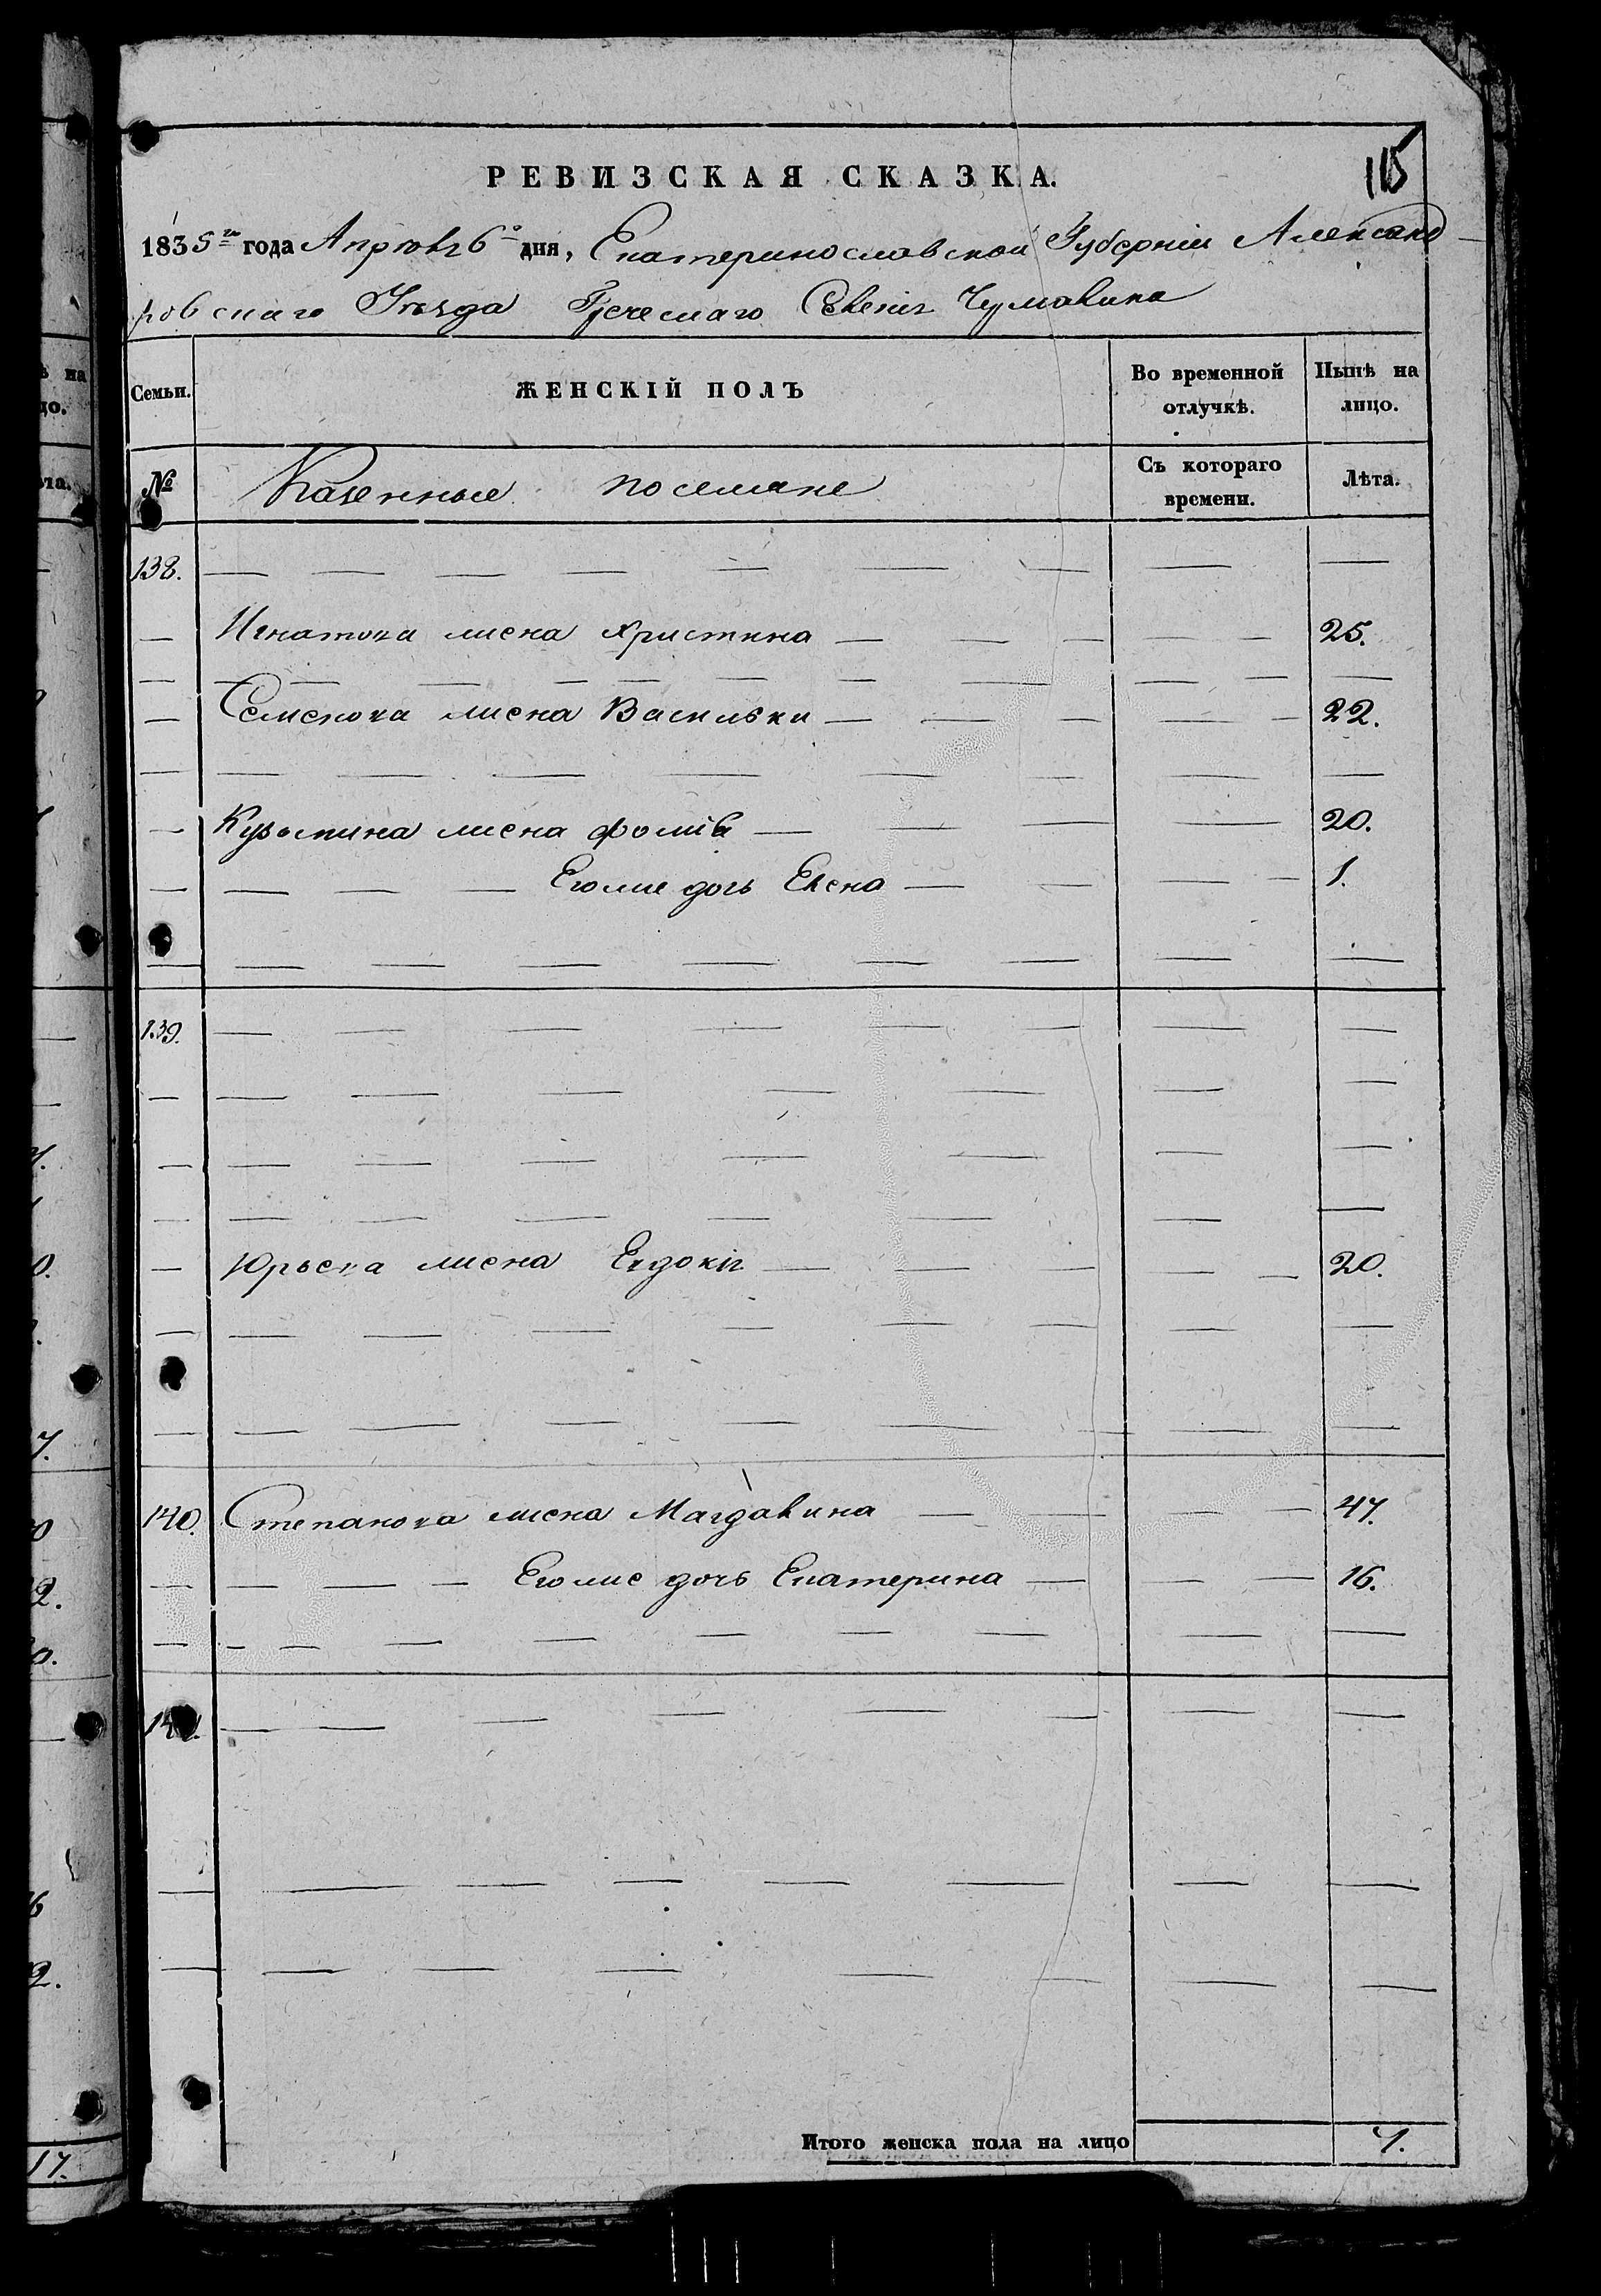 115
РЕВИЗСКАЯ СКАЗКА.
1835го года Апрѣля 6о дня, Екатеринославской Губерніи Александ-
ровскаго Уѣзда Греческаго Селенія Чумалика
Семьи. ЖЕНСКІЙ ПОЛЪ Во временной отлучкѣ. Нынѣ на лицо.
№ Казенные поселяне Съ котораго времени. Лѣта.
138. — — — — — — — — —
— Игнатова жена Христина — — — — — 25.
— — — — — — — — — — — —
— Семенова жена Васильки — — — — — 22.
— — — — — — — — —
— Кузьмина жена Фомів — — — — 20.
— — — — Его же дочь Елена — — — — 1.
— — — — — — — — —
139. — — — — — — — —
— — — — — — — —
— — — — — — — —
— — — — — — — —
— Юрьева жена Евдокія — — — — — 20.
— — — — — — — — —
— — — — — — — — —
140. Степанова жена Магдалина — — — — 47.
— — — — Его же дочь Екатерина — — — 16.
— — — — — — — — — —
141. — — — — — — — —
— — — — — — — —
— — — — — — — —
Итого женска пола на лицо 7.
17.